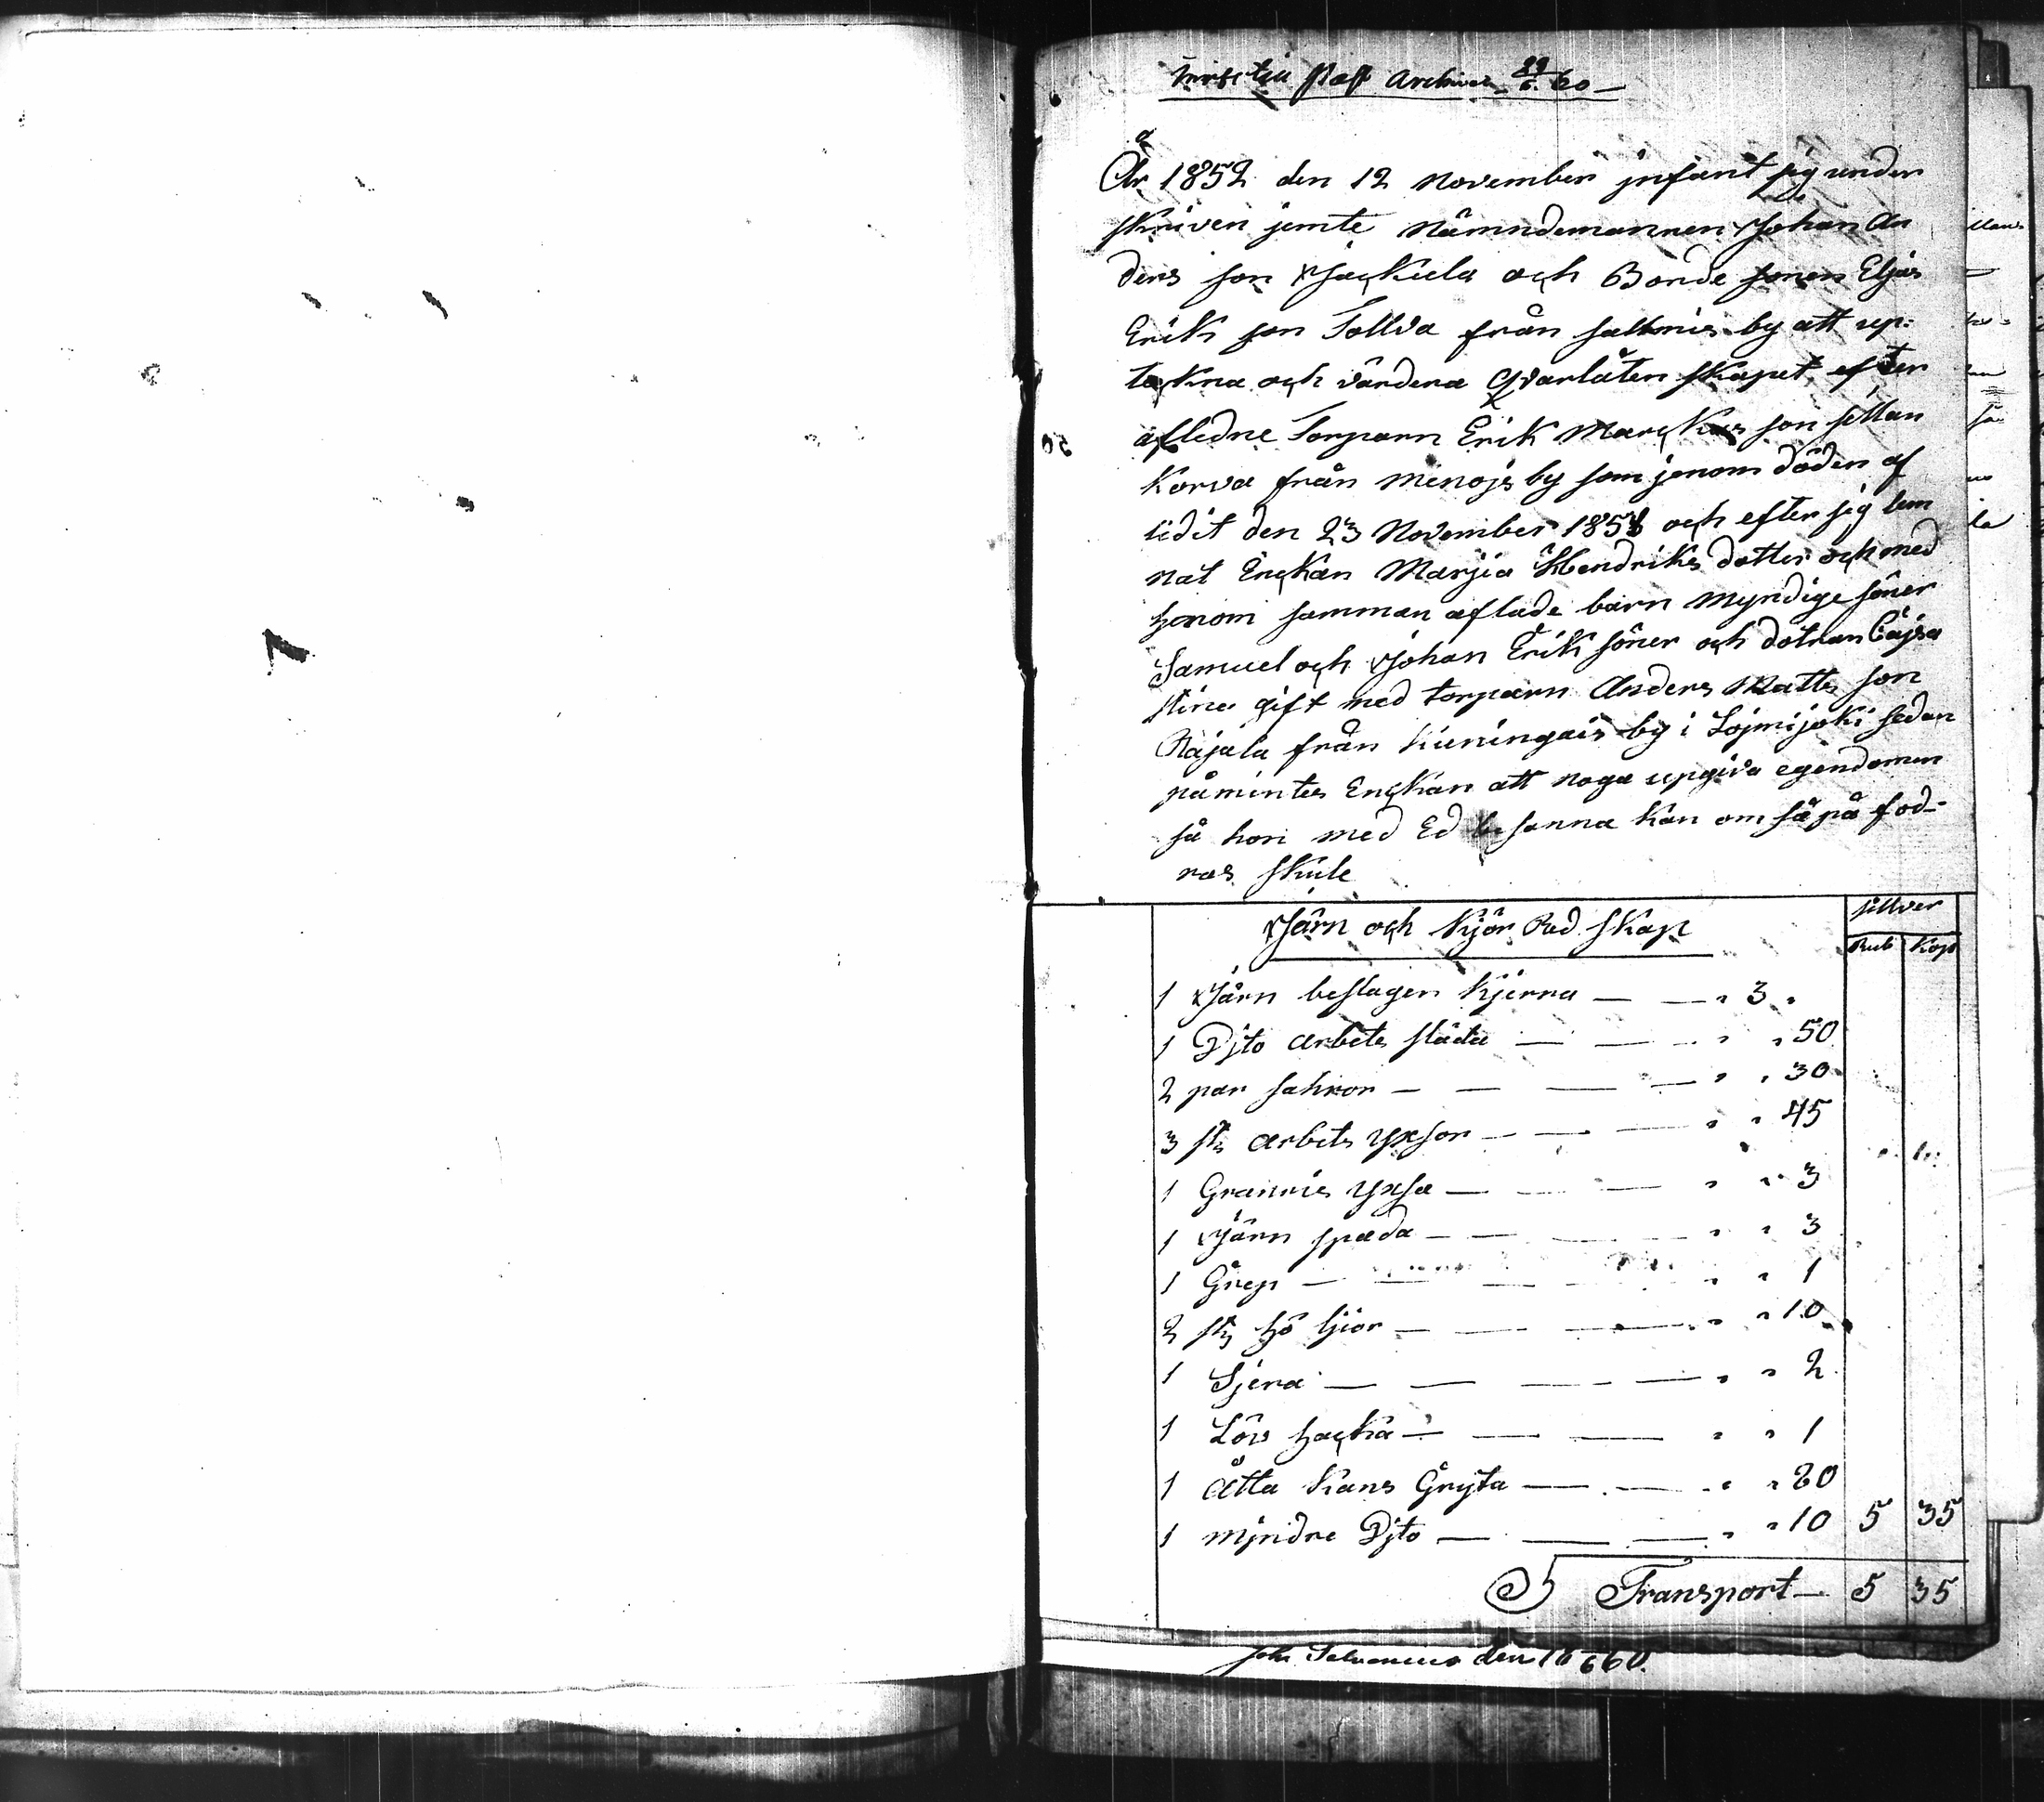 Archives 29/6. 60 —
År 1852 den 12 November jnfant sig under
skriven jemte Nämndemannen Johan An
ders son Jackula och Bonde sonen Eljas
Erik son Tollva från sallmis by att up:
teckna och värdera Qvarlåten skapet efter
afledne Torparn Erik Marckus son sillan
Korva från menojs by som jenom döden af
lidit den 23 November 185 och efter sig lem
nat Enckan Marjia Hendriks dotter och med
honom samman aflade barn Myndige söner
Samuel och Johan Erik söner och dotran Cajsa
stina gift med torparn Anders Matts son
Rajala från Kuningais by i Lojmijoki sedan
påmintes Enckan att noga upgiva egendomen
så hon med Ed be sanna kan om så på fod-
ras skule
Järn och Kjör Red skap
sillver
Rub Kop
1 Järn beslagen Kjerra — — " 3 "
1 Djto arbets släda — — " " 50
2 par sahkor — — — — " " 30
3 st arbets yxsor — — — " " 45
1 Grannis yxsa — — — " " 3
1 Järn spada — — — " " 3
1 Grep — — — — " " 1
2 st hö ljior — — — " " 10
1 Sjera — — — — " " 2
1 Löv hacka — — — " " 1
1 Åtta Kans Gryta — — " " 20
1 mjndre Djto — — — " " 10 5 35
Transport — 5 35
den 16 6 60.